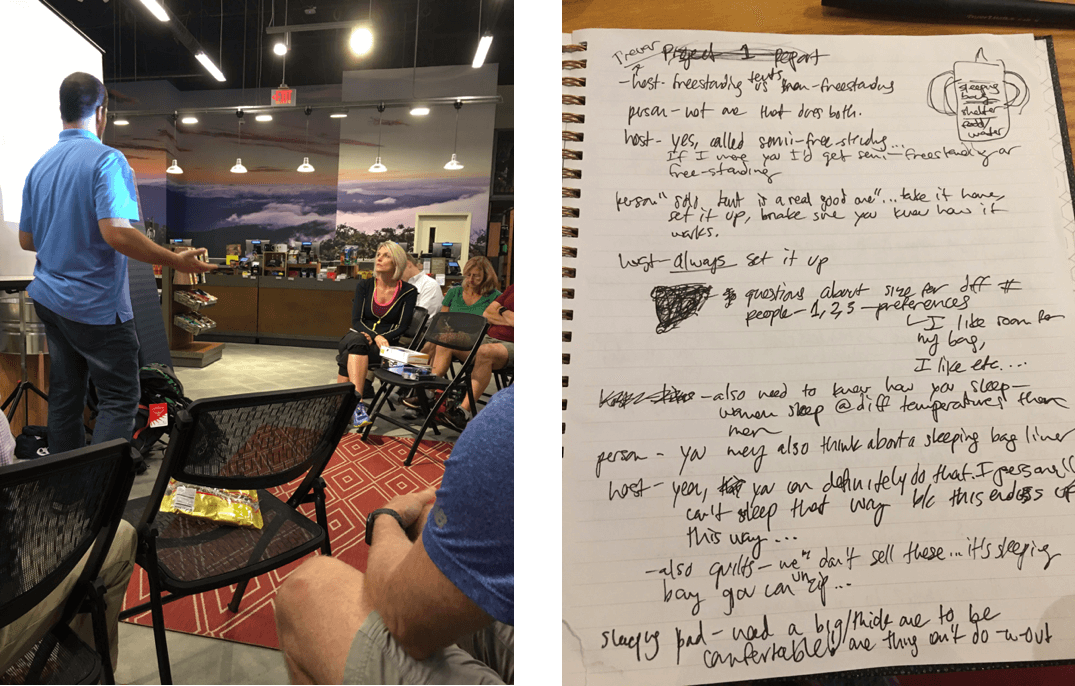 EXIT
Trevor
Project 1 report
-host-freestanding tents vs non-freestanding
person-not one that does both.
host- yes, called semi-free-stnding...
If I were you I'd get semi-freestanding or
free-standing
sleeping
bag
shelter
food/
water
person "solo tent is a real good one"... take it home,
set it up, make sure you know how it
works.
host- always set it up
questions about size for diff #
people-1,2,3-preferences
I like room for
my bag,
I like etc....
-also need to know how you sleep-
women sleep @ diff temperatures than
men
person- you may also think about a sleeping bag liner
host- yea, you can definitely do that. I personally
can't sleep that way b/c this ends up
this way...
-also quilts- "we don't sell these... it's sleeping
bag you can unzip...
sleeping pad-need a big/thick one to be
comfortable, one thing can't do w-out